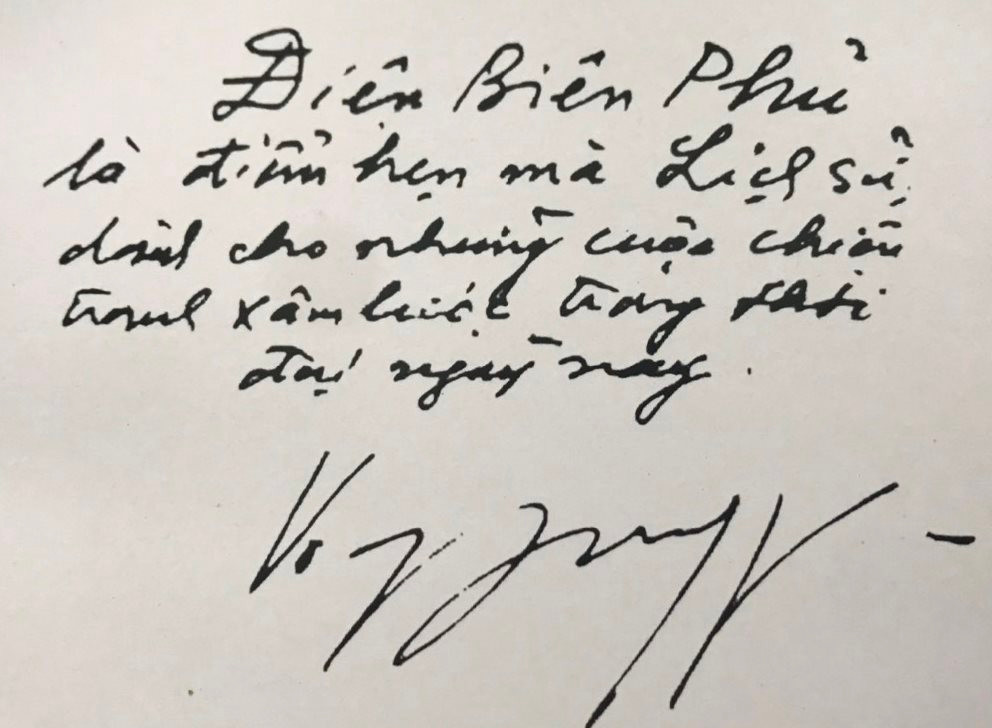 Điện Biên Phủ
là điểm hẹn mà Lịch sử
dành cho những cuộc chiến
tranh xâm lược trong thời
đại ngày nay.
Võ